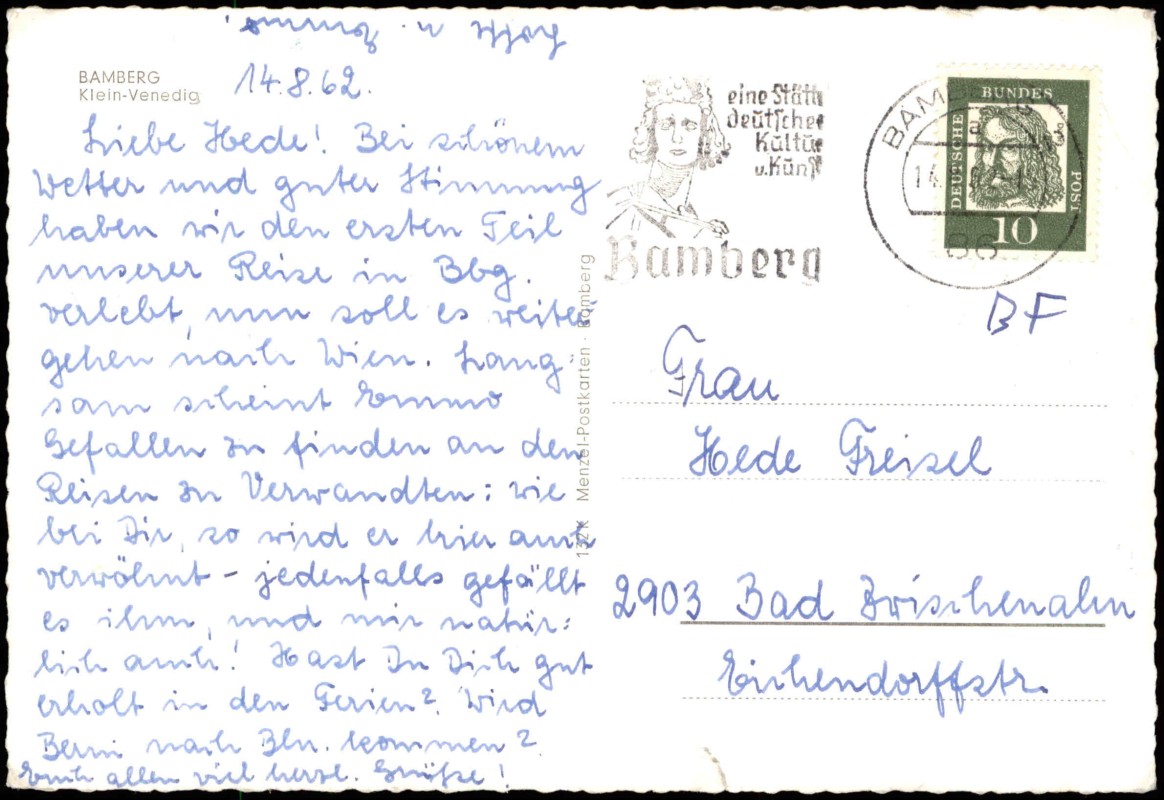 BAMBERG
Klein-Venedig
14.8.62.
Liebe Hede! Bei schönem
Wetter und guter Stimmung
haben wir den ersten Teil
unserer Reise in Bbg.
verlebt, nun soll es weiter
gehen nach Wien. Lang-
sam scheint Emmo
Gefallen zu finden an den
Reisen zu Verwandten: wie
bei Dir, so wird er hier auch
verwöhnt – jedenfalls gefällt
es ihm, und mir natür:
lich auch! Hast Du Dich gut
erholt in den Ferien? Wird
Berni nach Bln. kommen?
Euch allen viel herzl. Grüße!
u. Emmo.
132 K Menzel-Postkarten · Bamberg
eine Stätte
deutscher
Kultur
u. Kunst
Bamberg
BAMBERG
a
14.
86
DEUTSCHE
BUNDES
POST
10
BF
Frau
Hede Freisel
2903 Bad Zwischenahn
Eichendorffstr.